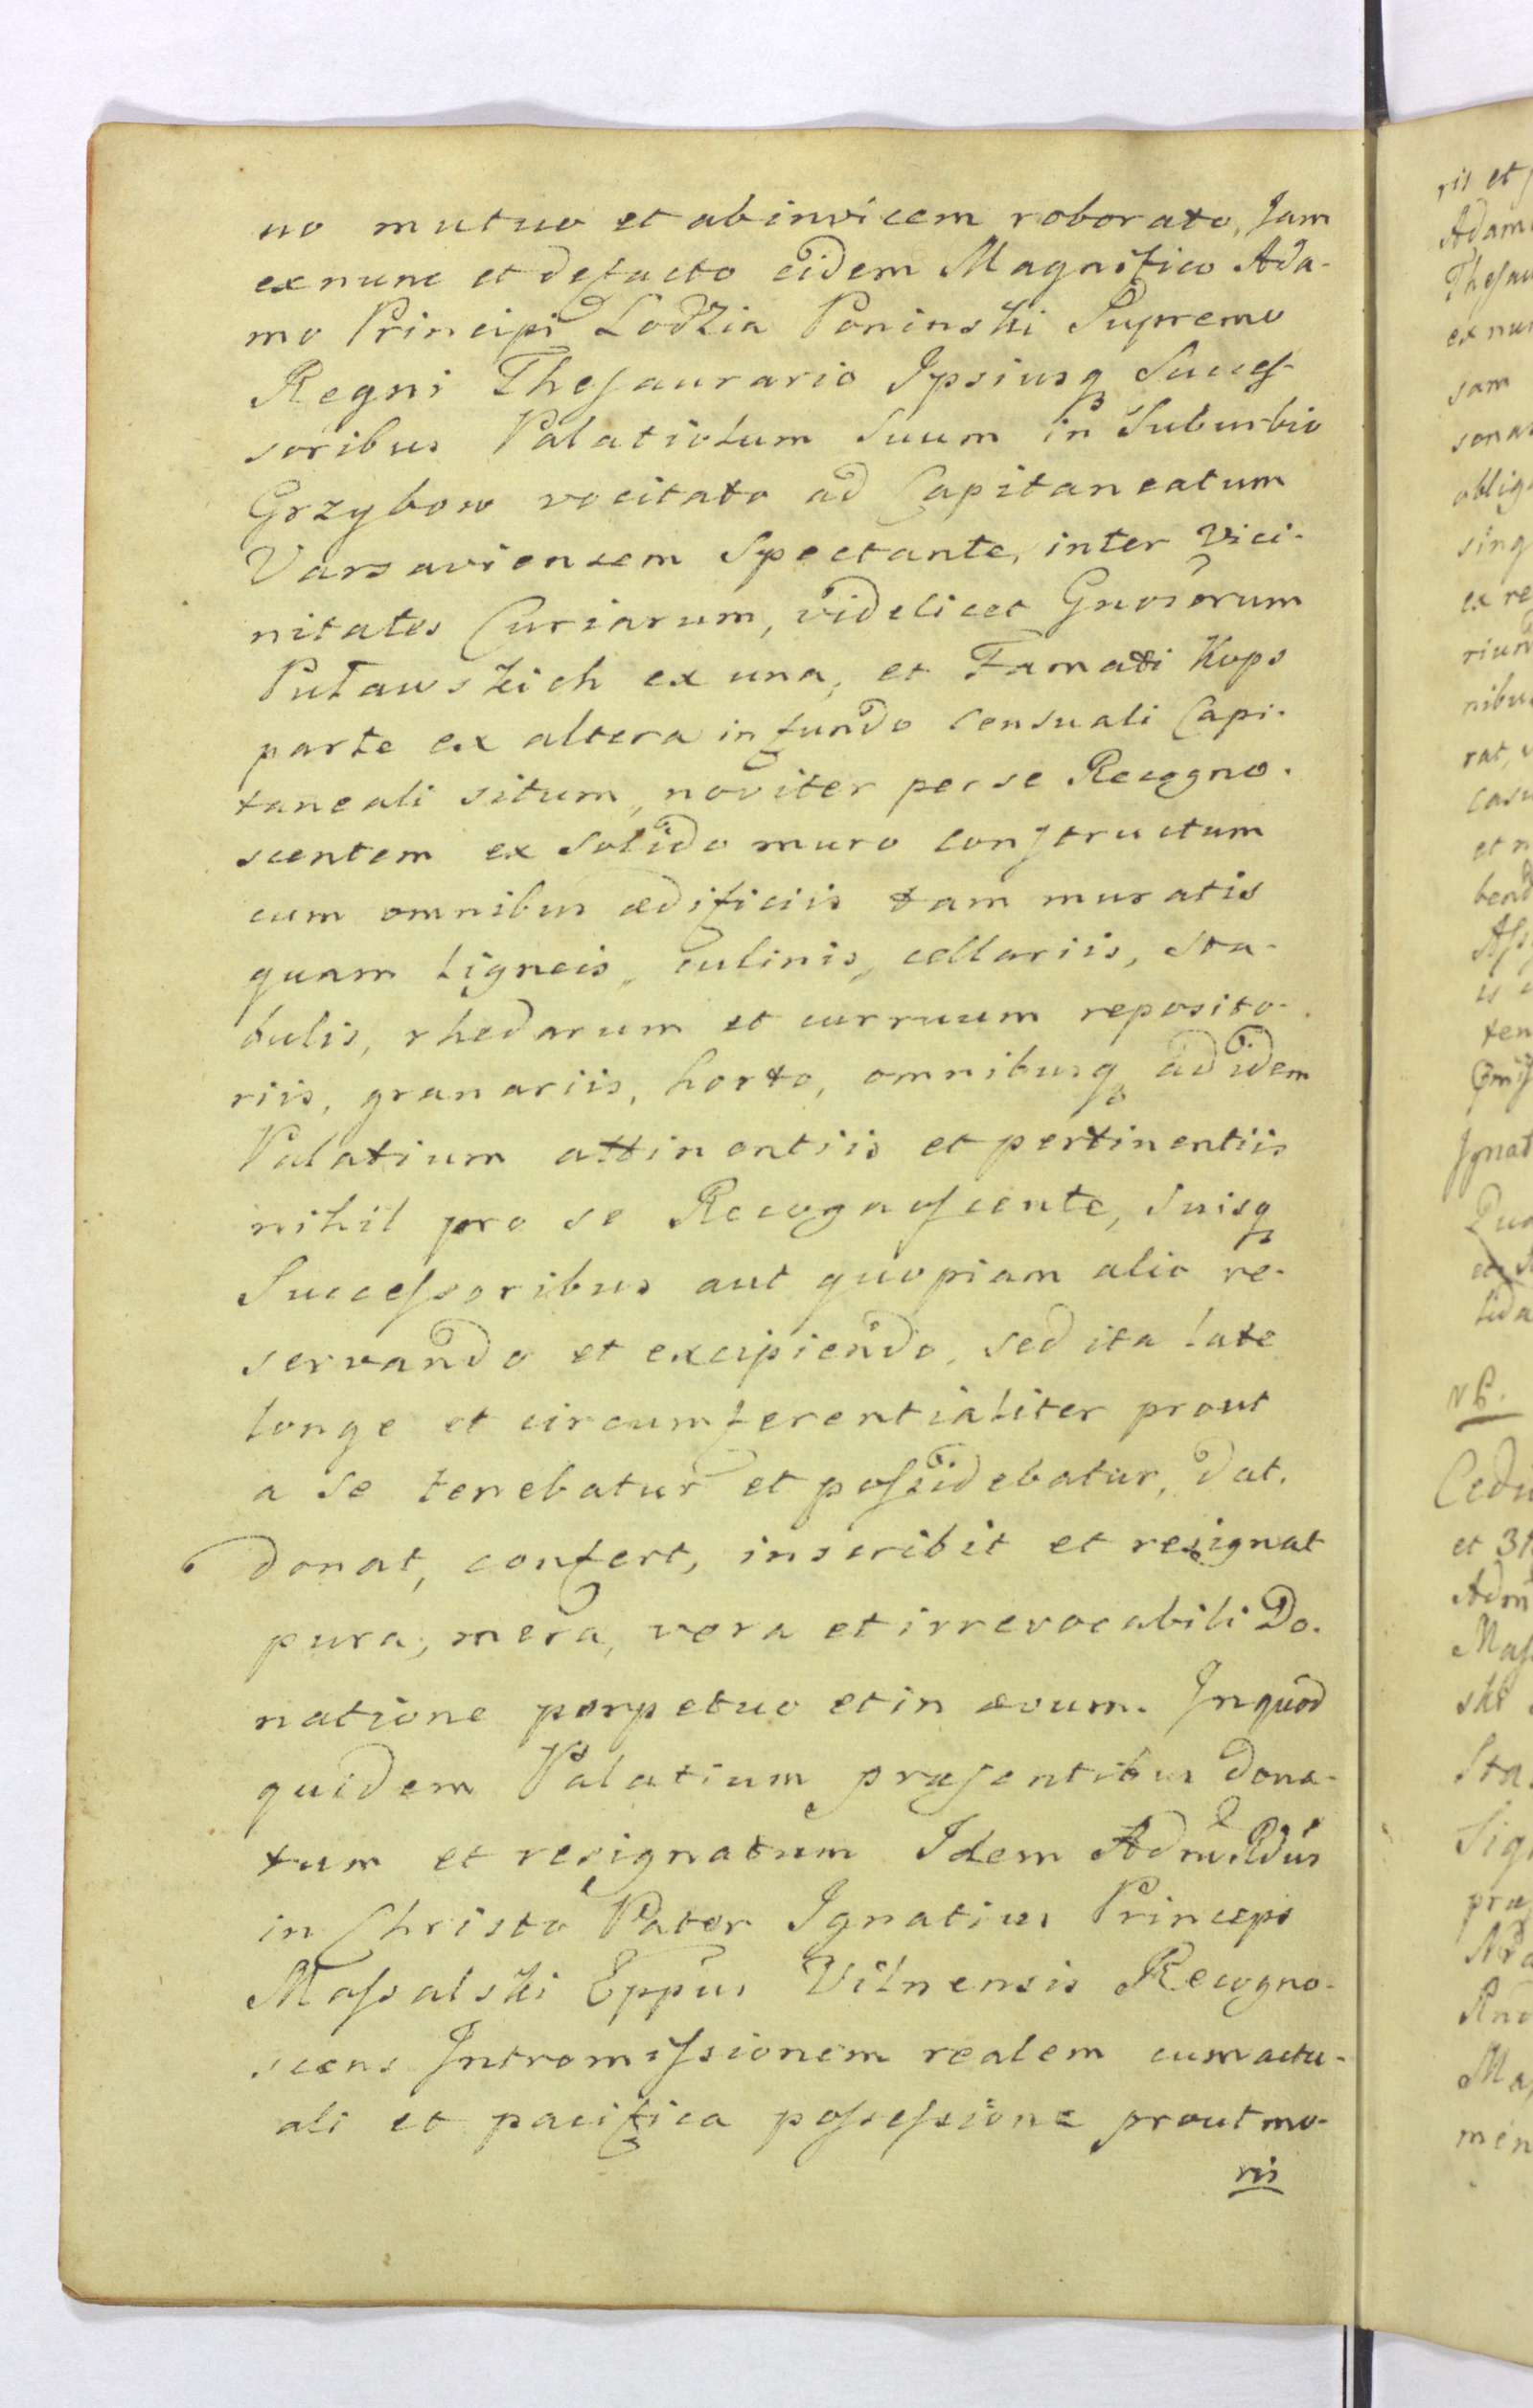 no mutuo et abinvicem roborato, Jam
exnunc et defacto eidem Magnifico Ada-
mo Principi Lodzia Poninski Supremo
Regni Thesaurario Ipsiusq Succes-
soribus Palatiolum Suum in Suburbio
Grzybow vocitato ad Capitaneatum
Varsaviensem Spectante, inter Vici-
nitates Curiarum, videlicet Gnosorum
Puławskich ex una, et Famati Kops
parte ex altera in fundo Censuali Capi-
taneali situm, noviter per se Recogno-
scentem ex Solido muro constructum
cum omnibus ædificiis tam muratis
quam Ligneis, culinis, cellariis, Sta-
bulis, rhedarum et curruum reposito-
riis, granariis, horto, omnibusq ad idem
Palatium attinentiis et pertinentiis
nihil pro se Recognoscente, Suisq
Successoribus aut quopiam alio re-
servando et excipiendo, sed ita late
longe et circumferentialiter prout
a Se tenebatur et possidebatur, dat.
donat, confert, inscribit et resignat
pura, mera, vera et irrevocabili Do-
natione perpetuo et in ævum. Inquod
quidem Palatium præsentibus dona-
tum et resignatum Idem Admr̃ Rdus
in Christo Pater Ignatius Princeps
Massalski Eppus Vilnensis Recogno-
scens Intromissionem realem cum actu-
ali et pacifica possessione prout mo-
ris